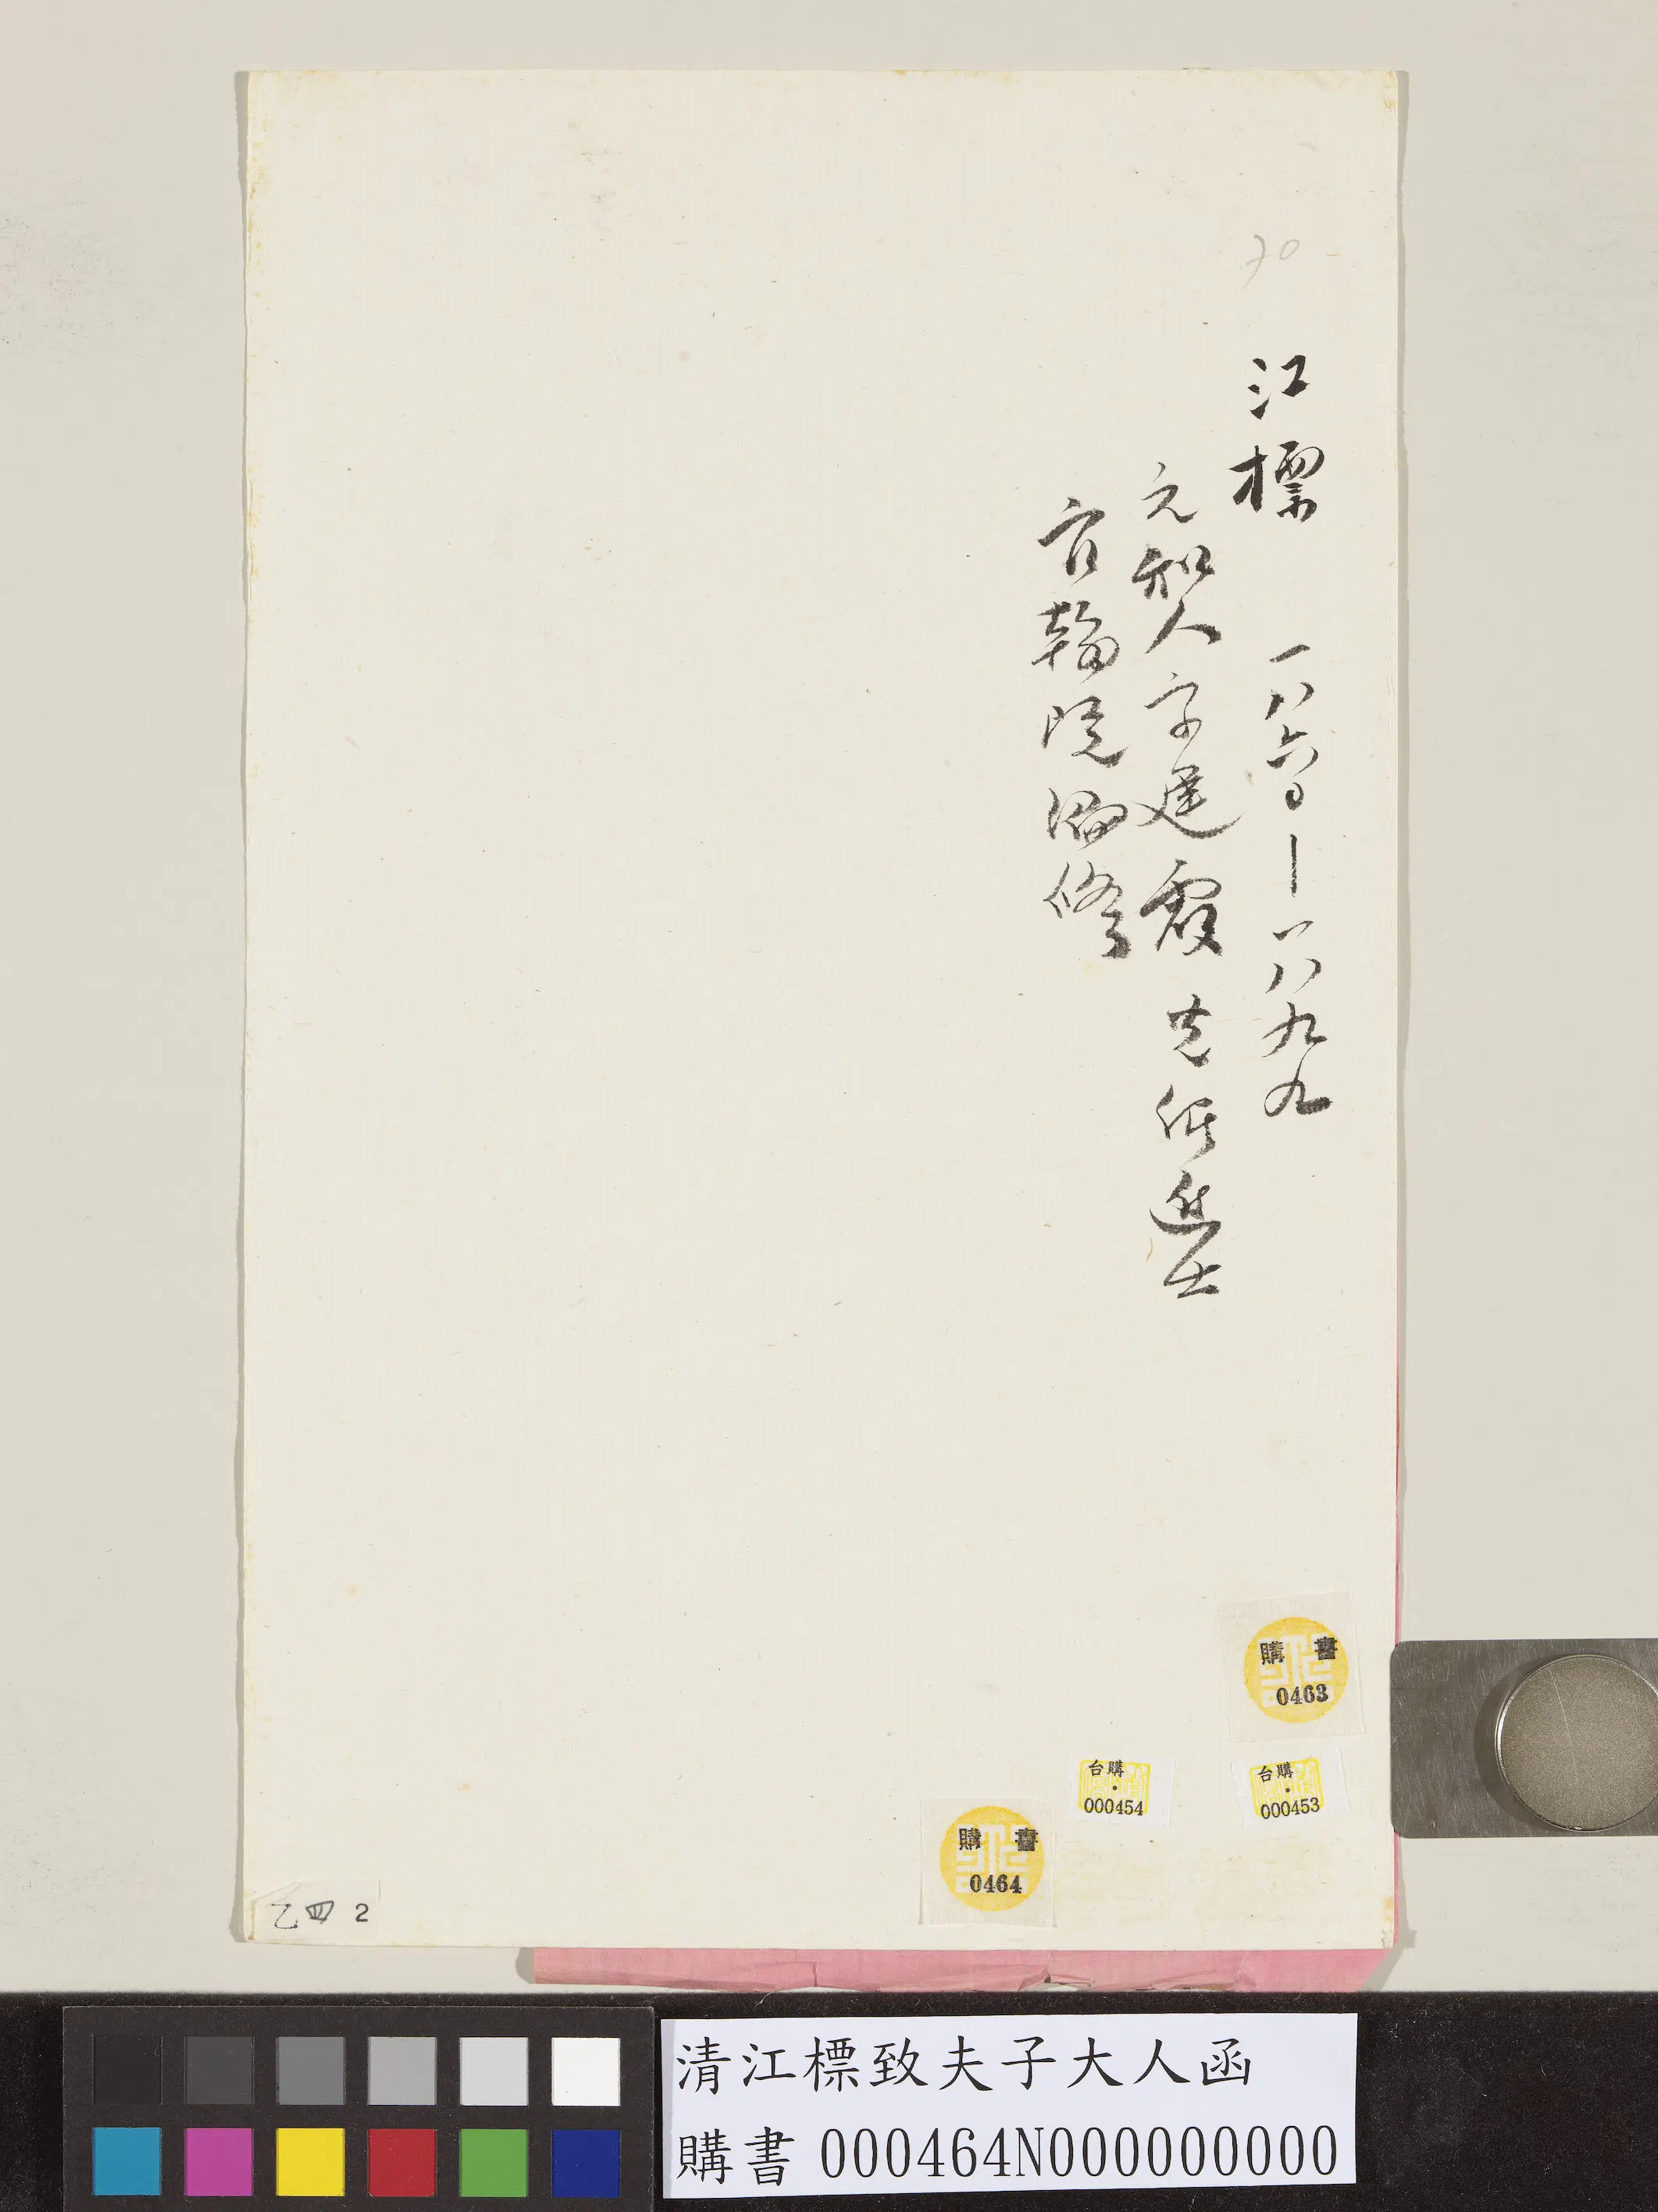 30
江標 一八六〇—一八九九
元和人字建霞 光緒進士
官翰院編修
購書
0463
台購
000453
台購
000454
購書
0464
乙四 2
清江標致夫子大人函
購書 000464N000000000